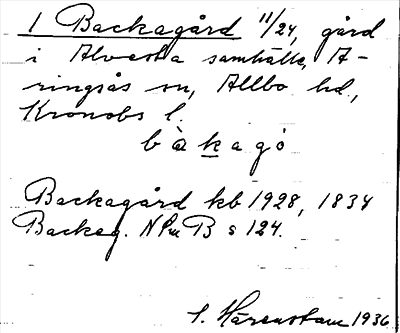 1 Backagård 11/24, gård
i Alvesta samhälle, A-
ringsås sn, Allbo hd,
Kronobs l.
bàkagó
Backagård kb 1928, 1834
Backeg. B s 124.
Härenstam 1936